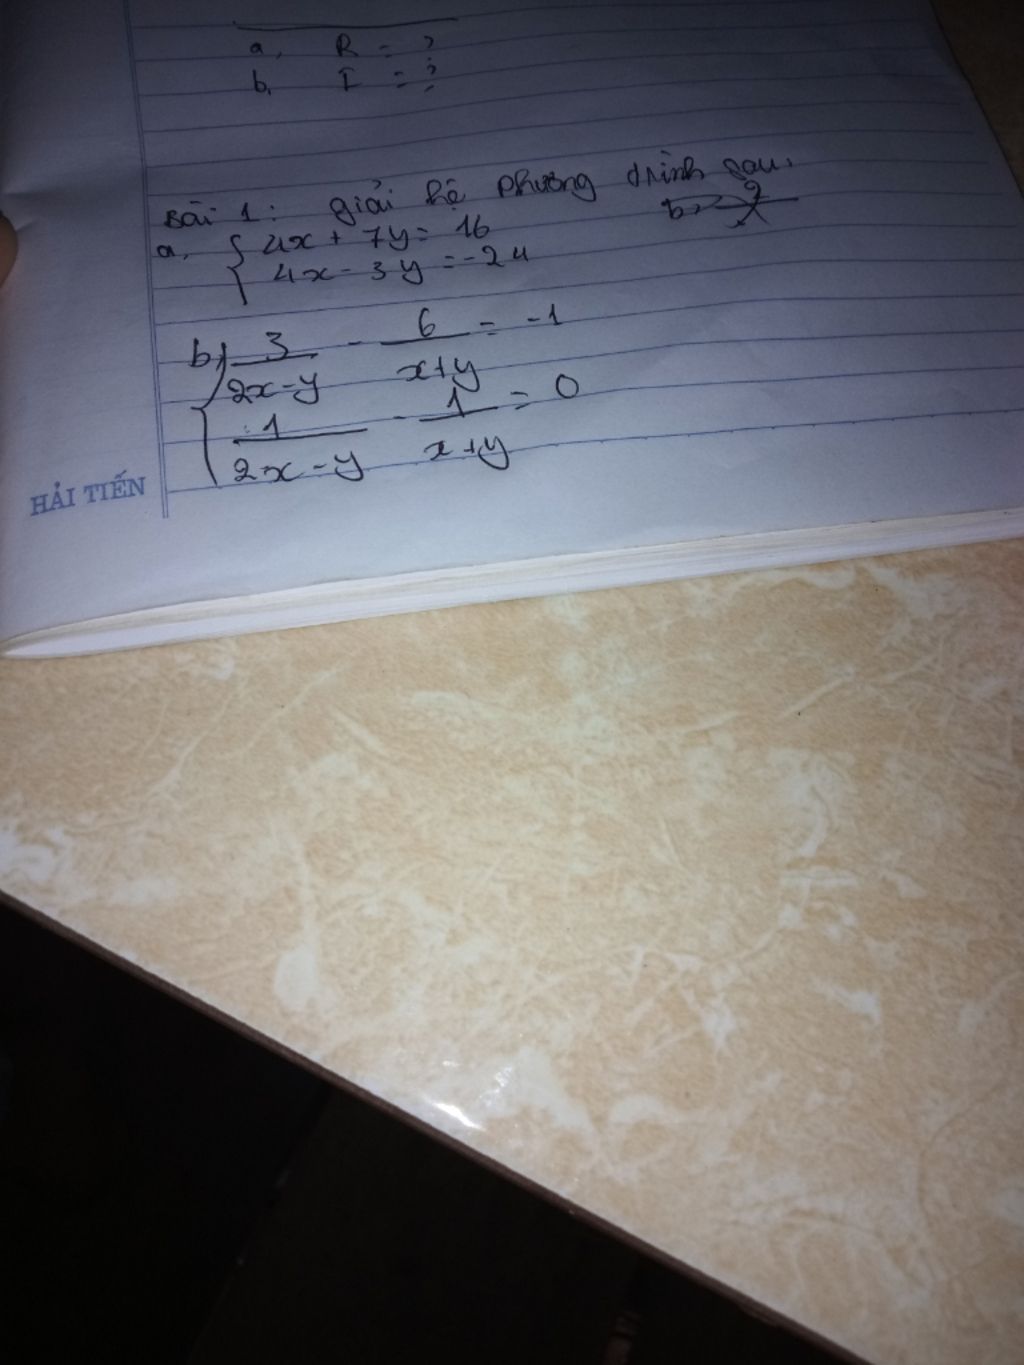 a, R = ?
b, I = ?
Bài 1: giải hệ phương trình sau.
a, { 4x + 7y = 16
4x - 3y = -24
b) { 3/(2x-y) - 6/(x+y) = -1
1/(2x-y) - 1/(x+y) = 0
HẢI TIẾN